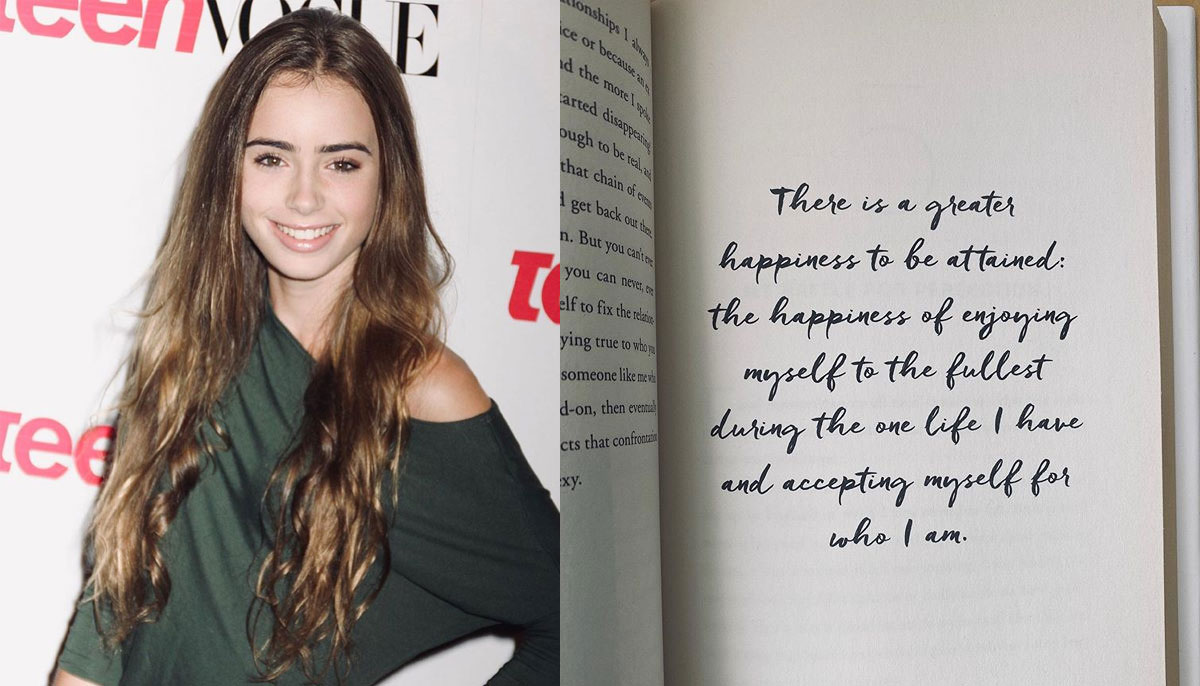 teen VOGUE
te
tee
ationships I always
ice or because an ex
nd the more I spoke
tarted disappearing
ough to be real, and
that chain of events
d get back out there
n. But you can't ever
you can never, ever
elf to fix the relation-
ying true to who you
someone like me who
d-on, then eventually
cts that confrontation
exy.
There is a greater
happiness to be attained:
the happiness of enjoying
myself to the fullest
during the one life I have
and accepting myself for
who I am.